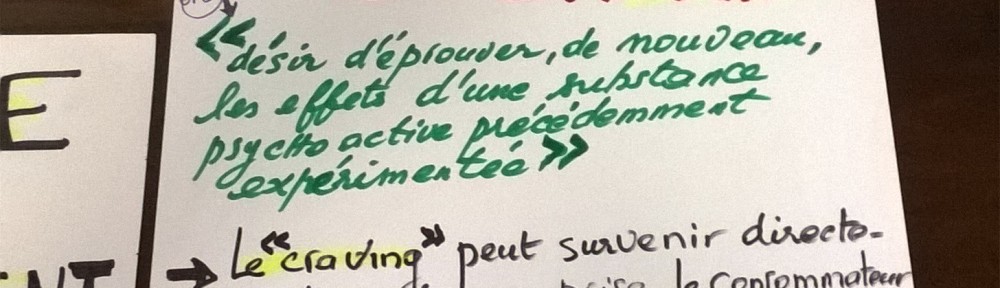 E
« désir d'éprouver, de nouveau,
les effets d'une substance
psycho active précédemment
expérimentée »
→ Le "craving" peut survenir directe-
le consommateur
ENT